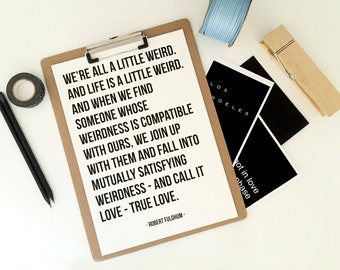 WE'RE ALL A LITTLE WEIRD.
AND LIFE IS A LITTLE WEIRD.
AND WHEN WE FIND
SOMEONE WHOSE
WEIRDNESS IS COMPATIBLE
WITH OURS, WE JOIN UP
WITH THEM AND FALL INTO
MUTUALLY SATISFYING
WEIRDNESS - AND CALL IT
LOVE - TRUE LOVE.
- ROBERT FULGHUM -
LOS
NGELES
not in love
phase